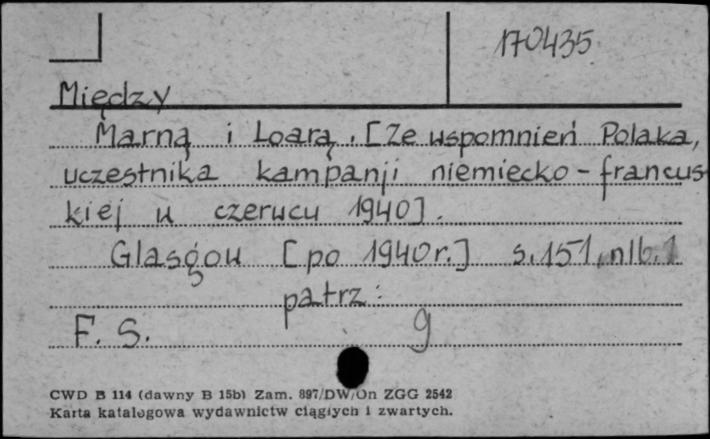 170435
Między
Marną i Loarą. [Ze wspomnień Polaka,
uczestnika kampanji niemiecko-francus-
kiej w czerwcu 1940].
Glasgow [po 1940r.] s.151, nlb.1
patrz:
F. S. g
CWD B 114 (dawny B 15b) Zam. 897/DW/On ZGG 2542
Karta katalogowa wydawnictw ciągłych i zwartych.